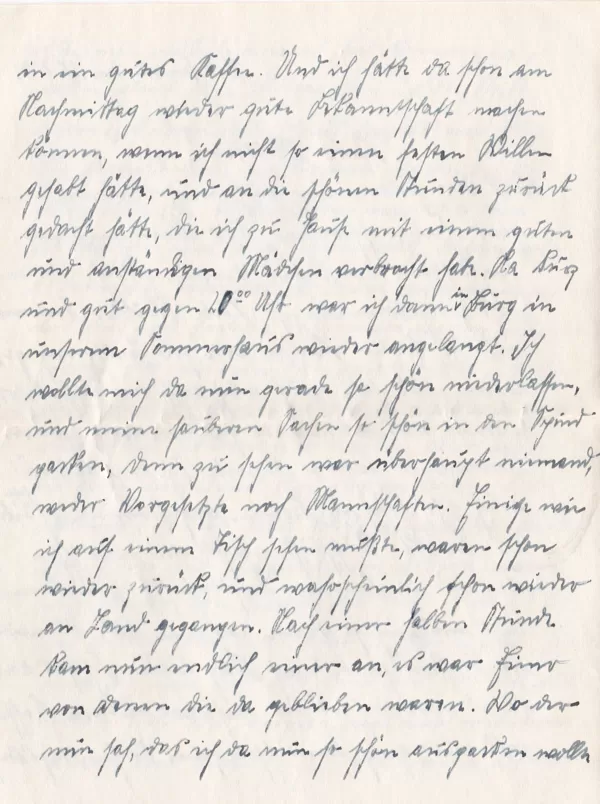 in ein gutes Kaffee. Und ich hätte da schon am
Nachmittag wieder gute Bekanntschaft machen
können, wenn ich nicht so einen festen Willen
gehabt hätte, und an die schönen Stunden zurück
gedacht hätte, die ich zu Hause mit einem guten
und anständigen Mädchen verbracht habe. Na kurz
und gut gegen 20⁰⁰ Uhr war ich dann in Burg in
unserem Sommerhaus wieder angelangt. Ich
wollte mich da nun gerade so schön niederlassen,
und meine sauberen Sachen so schön in den Spind
packen, denn zu sehen war überhaupt niemand,
weder Vorgesetzte noch Mannschaften. Einige wie
ich auf einem Tisch sehen mußte, waren schon
wieder zurück, und wahrscheinlich schon wieder
an Land gegangen. Nach einer halben Stunde
kam nun endlich einer an, es war Einer
von denen die da geblieben waren. Wo der
nun sah, das ich da nun so schön auspacken wollte